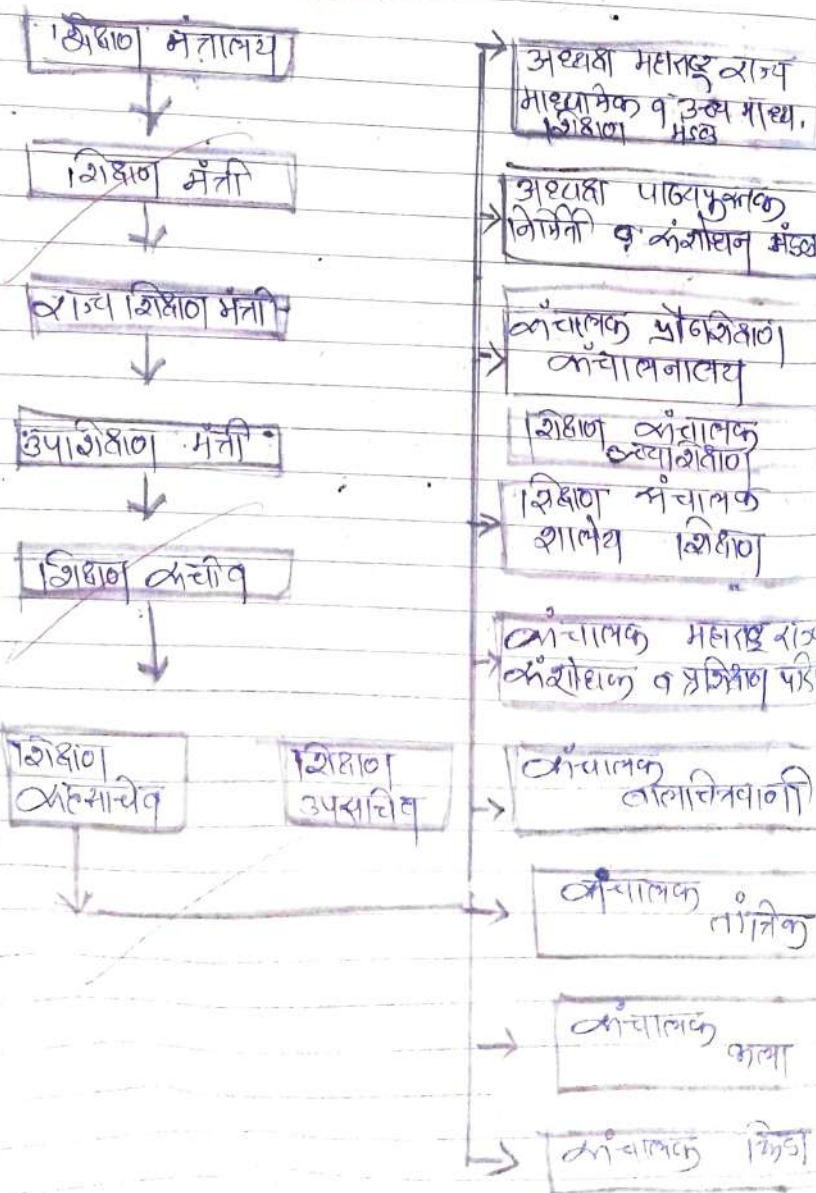 शिक्षण मंत्रालय
शिक्षण मंत्री
राज्य शिक्षण मंत्री
उपशिक्षण मंत्री
शिक्षण सचीव
शिक्षण
सहसचिव
शिक्षण
उपसचिव
अध्यक्ष महाराष्ट्र राज्य
माध्यमिक व उच्च माध्य.
शिक्षण मंडळ
अध्यक्ष पाठ्यपुस्तक
निर्मिती व संशोधन मंडळ
संचालक प्रौढशिक्षण
संचालनालय
शिक्षण संचालक
उच्चशिक्षण
शिक्षण संचालक
शालेय शिक्षण
संचालक महाराष्ट्र राज्य
संशोधक व प्रशिक्षण
संचालक
बालचित्रवाणी
संचालक
तांत्रिक
संचालक
कला
संचालक क्रिडा